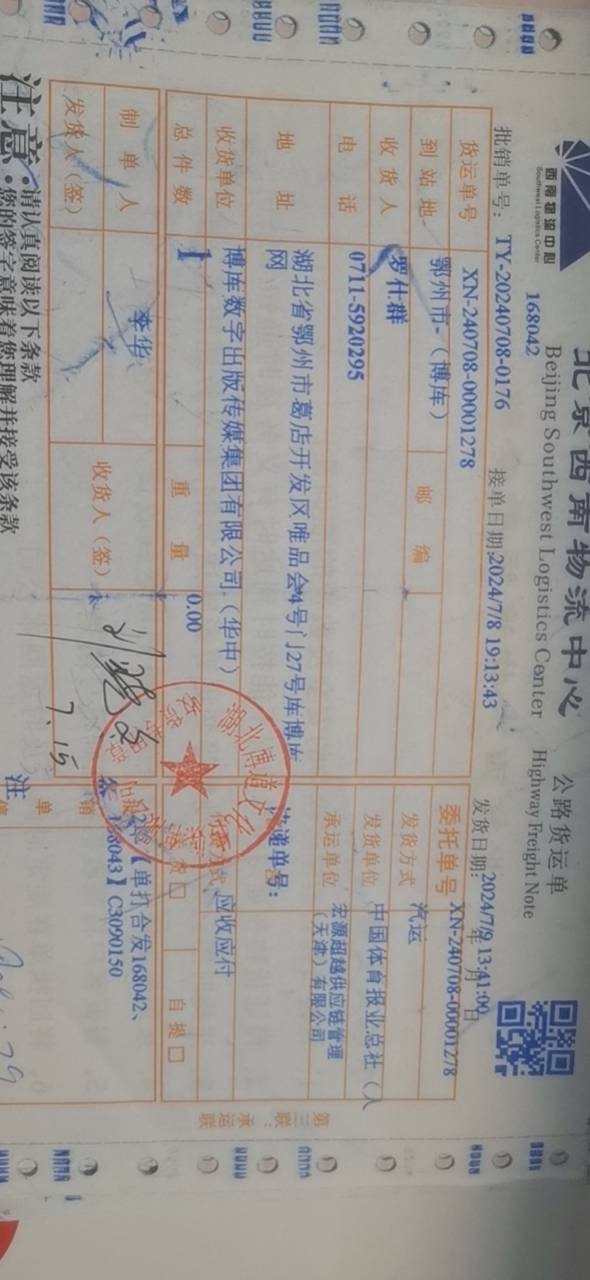 西南物流中心
Southwest Logistics Center
北京西南物流中心
Beijing Southwest Logistics Center
168042
公路货运单
Highway Freight Note
批销单号: TY-20240708-0176
接单日期:2024/7/8 19:13:43
发货日期: 2024/7/9 13:41:00
年 月 日
货运单号 XN-240708-00001278
委托单号 XN-240708-00001278
到站地 鄂州市-（博库） 邮编
发货方式 汽运
收货人 罗仕群
发货单位 中国体育报业总社（人
电话 0711-5920295
承运单位 宏源超越供应链管理
（天津）有限公司
地址 湖北省鄂州市葛店开发区唯品会4号门27号库博库
网
递单号:
收货单位 博库数字出版传媒集团有限公司（华中）
方式 应收应付
总件数 1 重量 0.00
自提 □
制单人 李华
收货人（签）
7.15
发货人（签）
【单打合发168042、
168043】C3090150
第三联：承运联
注意：请认真阅读以下条款
您的签字意味着您理解并接受该条款